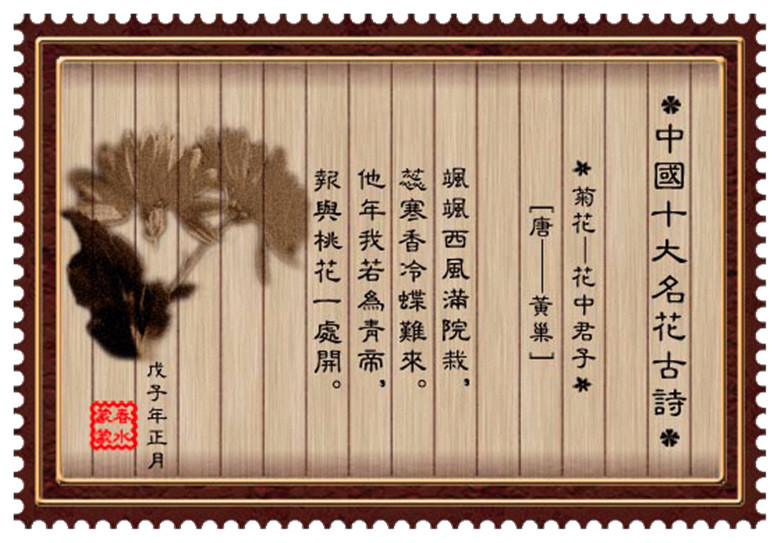 ✽中國十大名花古詩✽
★菊花—花中君子★
[唐——黃巢]
颯颯西風滿院栽，
蕊寒香冷蝶難來。
他年我若為青帝，
報與桃花一處開。
戊子年正月
春水